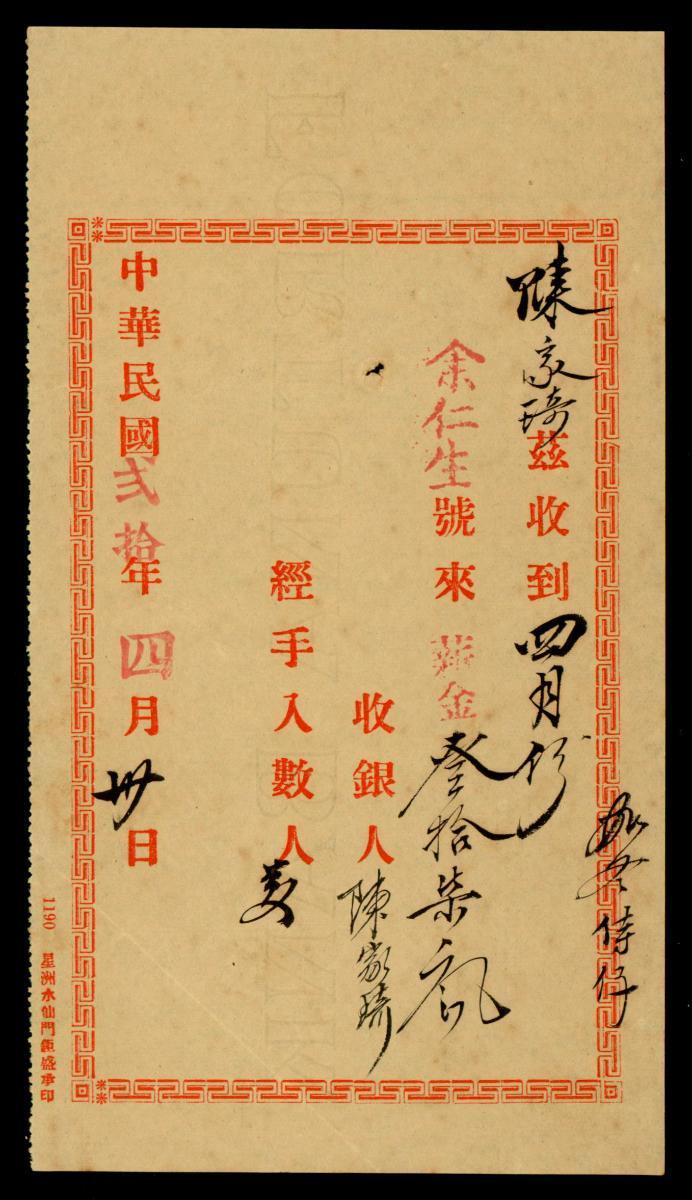 陳家琦茲收到四月份
余仁生號來薪金叁拾柒
收銀人陳家琦
經手入數人
中華民國弍拾年四月卅日
1190 星洲水仙門鉅盛承印